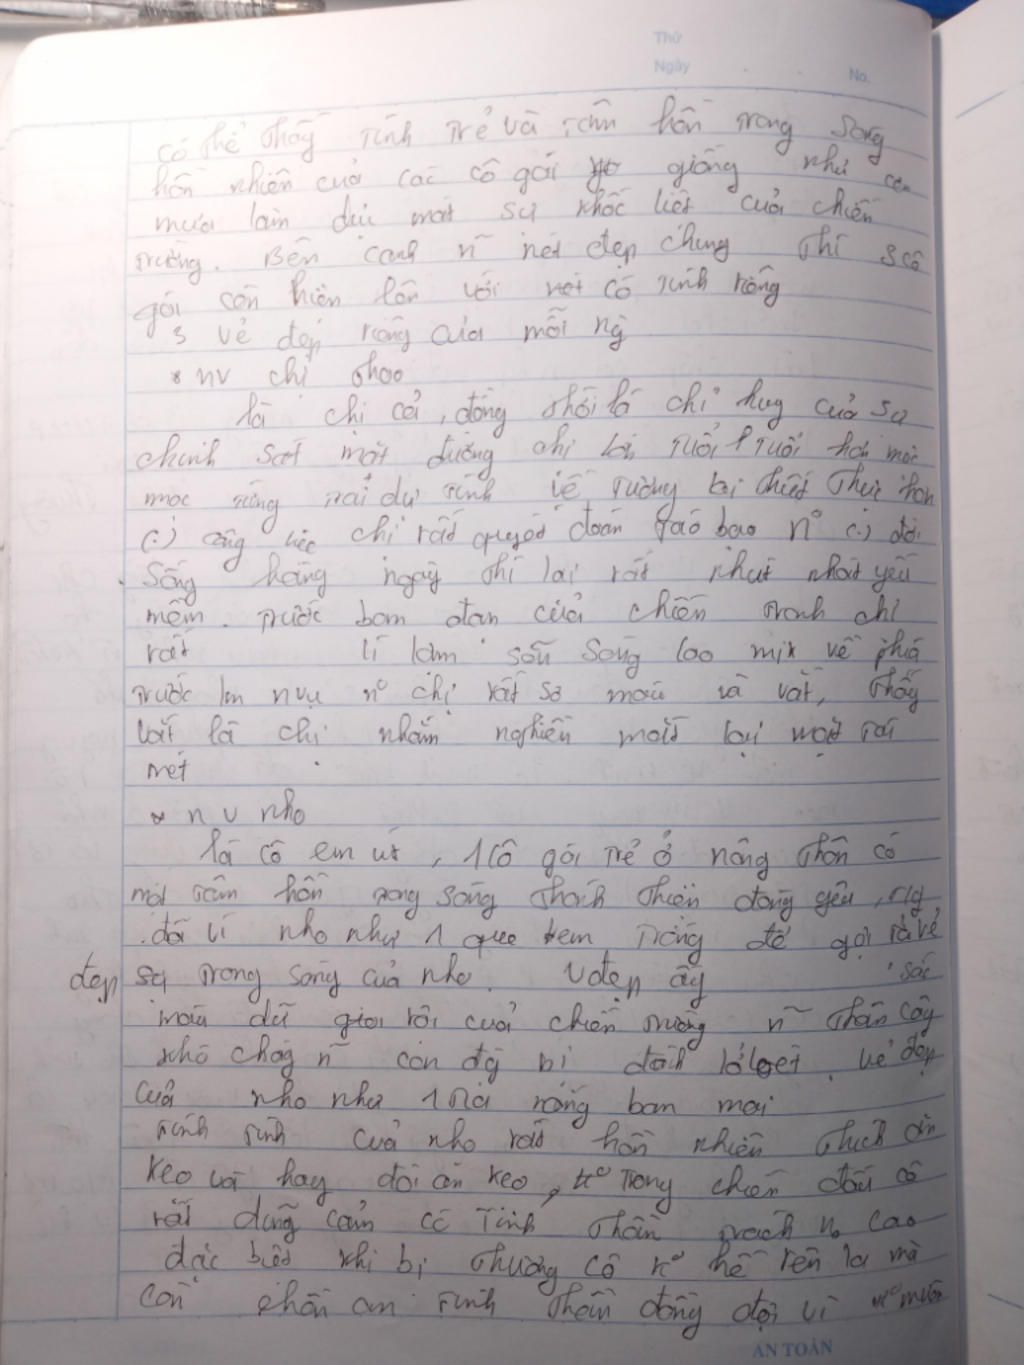 Thứ
Ngày
No.
có thể thấy tính trẻ và tâm hồn trong sáng
hồn nhiên của các cô gái giống như cơn
mưa làm dịu mát sự khốc liệt của chiến
trường. Bên cạnh n~ nét đẹp chung thì 3 cô
gái còn hiện lên với nét cá tính riêng
3 vẻ đẹp riêng của mỗi ng
* nv chị thao
là chị cả, đồng thời là chỉ huy của
trinh sát mặt đường chị tuổi
từng trải dự tính về tương lai thiết thực hơn
(.) công việc chị rất quyết đoán táo bạo n° (.) đời
sống hằng ngày thì lại rất nhút nhát yếu
mềm. trước bom đạn của chiến tranh chị
rất lì lợm sẵn sàng lao về phía
trước làm nvụ n° chị rất sợ máu và vắt, thấy
vắt là chị nhắm nghiền mắt lại mặt tái
mét
* nv nho
là cô em út, 1 cô gái trẻ ở nông thôn có
một tâm hồn trong sáng thánh thiện đáng yêu, t/g
đã ví nho như 1 que kem trắng để gợi tả vẻ
đẹp sự trong sáng của nho. Vđẹp ấy sắc
màu dữ dội của chiến trường n~ thân cây
khô cháy n~ căn đá bị . Vẻ đẹp
của nho như 1 tia nắng ban mai
tính tình của nho rất hồn nhiên thích ăn
kẹo và hay đòi ăn kẹo, trong chiến đấu cô
rất dũng cảm có tinh thần trách n° cao
đặc biệt khi bị thương cô k° hề rên la mà
còn chấn an tinh thần đồng đội vì k° muốn
AN TOÀN